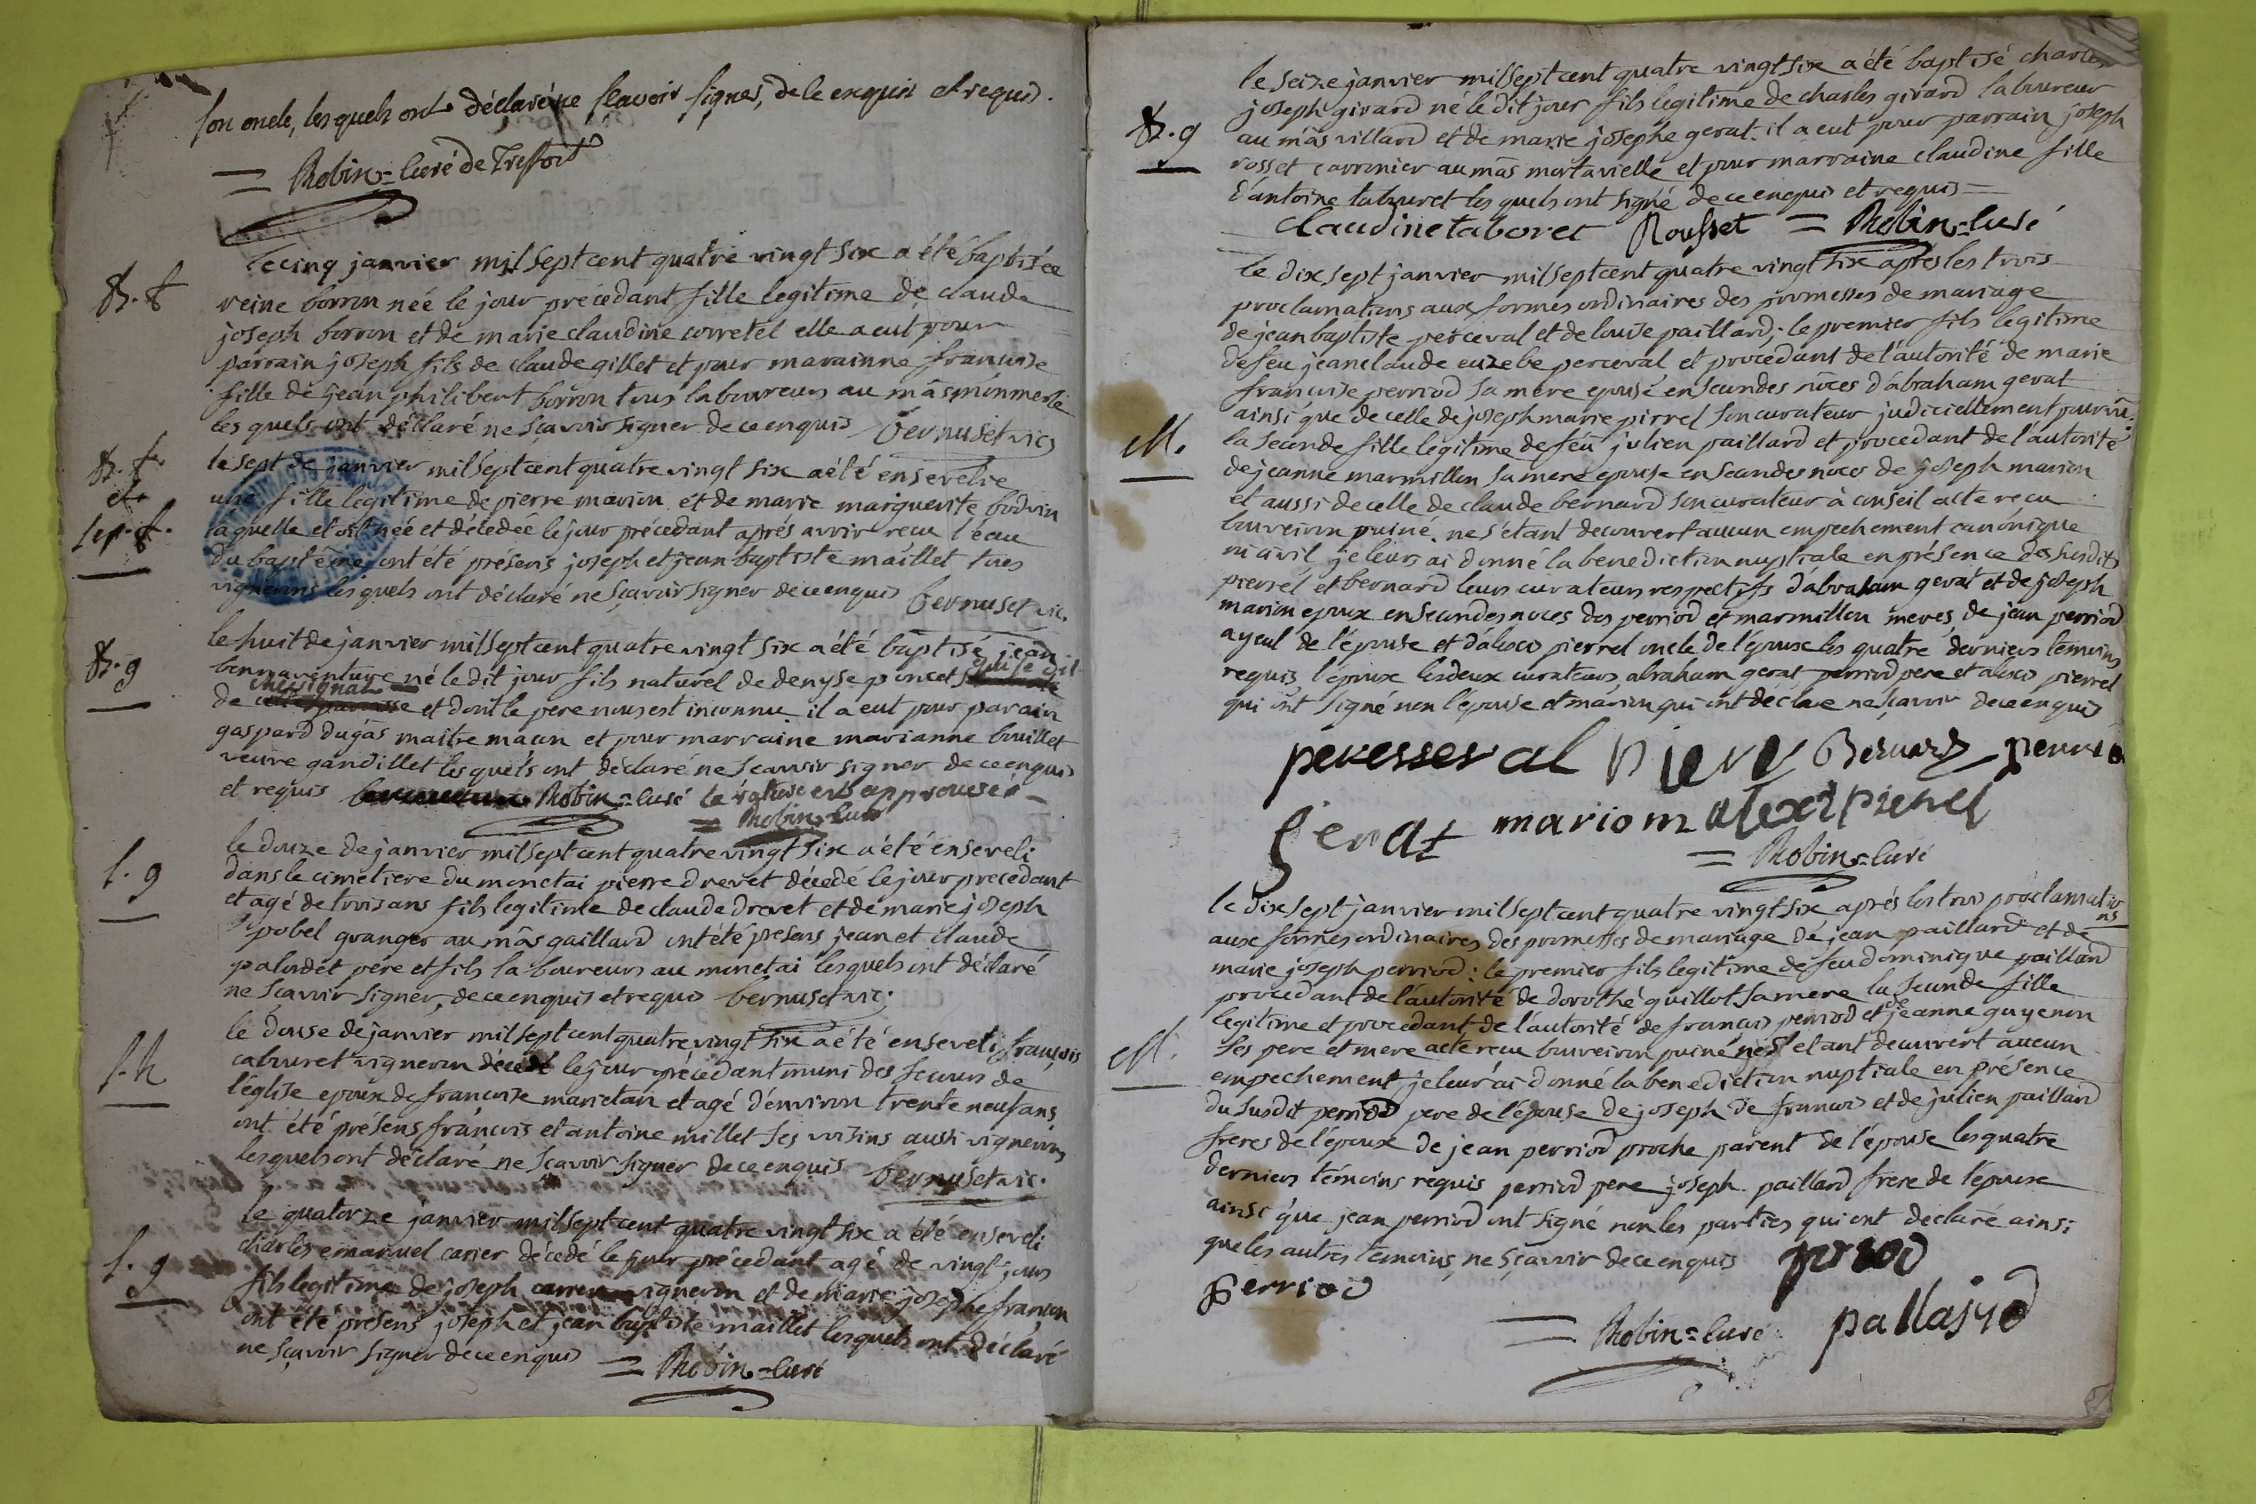 son oncle, lesquels ont déclaré ne sçavoir signer, de le enquis et requis.
= Robin = curé de Treffort
le cinq janvier mil sept cent quatre vingt six a été baptisée
B. f
reine borron née le jour précédant fille legitime de claude
joseph borron et de marie claudine corretel elle a eut pour
parrain joseph fils de claude gillet et pour marainne francoise
fille de jean philibert borron tous laboureurs au mâs monmerle
les quels ont déclaré ne sçavoir signer de ce enquis bernuset vic
B. f.
et
sep. f.
le sept de janvier mil sept cent quatre vingt six a été ensevelie
une fille legitime de pierre marion et de marie marguerite bodvin
laquelle et ost née et décedeé le jour précedant aprés avoir recu l'eau
du baptême, ont été présens joseph et jean baptiste maillet tous
vignerons les quels ont déclaré ne sçavoir signer de ce enquis bernuset vic.
le huit de janvier mil sept cent quatre vingt six a été baptisé jean
B. g
bonnaventure né le dit jour fils naturel de denyse poncet
de et dont le pere nous est inconnu. il a eut pour parain
gaspard dugas maitre macon et pour marraine marianne bouillet
veuve gandillet les quels ont déclaré ne scavoir signer de ce enquis
et requis Robin = curé la rature est approuvée
= Robin = curé
le douze de janvier mil sept cent quatre vingt six a été enseveli
S. g
dans le cimetiere du monetai pierre drevet décedé le jour precedant
et agé de trois ans fils legitime de claude drevet et de marie joseph
pobel granger au mâs gaillard ont été presens jean et claude
palordet pére et fils laboureurs au monetai lesquels ont déclaré
ne sçavoir signer, de ce enquis et requis bernuset vic:
le douse de janvier mil sept cent quatre vingt six a été enseveli françois
S. h
caburet vigneron décedé le jour précédant muni des secours de
l'église epoux de francoise marietan et agé d'environ trente neuf ans
ont été présens françois et antoine millet ses voisins aussi vignerons
lesquels ont déclaré ne sçavoir signer de ce enquis bernuset vic.
le quatorze janvier mil sept cent quatre vingt six a été enseveli
charles emanuel carrier décedé le jour précedant agé de vingt jours
S. g
fils legitime de joseph vigneron et de marie josephe francon
ont été présens joseph et jean baptiste maillet lesquels ont déclaré
ne sçavoir signer de ce enquis = Robin = curé
le seize janvier mil sept cent quatre vingt six a été baptisé charles
B. g
joseph girard né le dit jour fils legitime de charles girard laboureur
au mâs villard et de marie josephe gerat. il a eut pour parrain joseph
rosset carronier au mâs mortavielle et pour marraine claudine fille
d'antoine taburet les quels ont signé de ce enquis et requis =
Claudine taboret Rousset = Robin = curé
le dix sept janvier mil sept cent quatre vingt six aprés les trois
proclamations aux formes ordinaires des promesses de mariage
de jean baptiste perceval et de louise paillard; le premier fils legitime
de feu jean claude euzebe perceval et procedant de l'autorité de marie
francoise perriod sa mére epouse en secondes nôces d'abraham gerat
ainsi que de celle de joseph marie pirrel son curateur judiciellement pourvu:
M.
la seconde fille legitime de feu julien paillard et procedant de l'autorité
de jeanne marmillon sa mere epouse en secondes noces de joseph marion
et aussi de celle de claude bernard son curateur à conseil acte recu
bouveiron puiné. ne s'étant decouvert aucun empechement canonique
ni civil je leurs ai donné la benediction nuptiale en présence des susdits
pierrel et bernard leurs curateurs respectifs d'abraham gerat et de joseph
marion epoux en secondes noces des perriod et marmillon meres, de jean perriod
ayeul de l'épouse et d'alexis pierrel oncle de l'épouse les quatre derniers temoins
requis l'épouse les deux curateurs, abraham gerat perriod pere et alexis pierrel
qui ont signé non l'épouse et marion qui ont déclaré ne sçavoir de ce enquis
peresseval piere Bernard perrio
gerat mariom alexi pierrel
= Robin = curé
le dix sept janvier mil sept cent quatre vingt six aprés les trois proclamatio
ns
aux formes ordinaires des promesses de mariage de jean paillard et de
marie joseph perriod: le premier fils legitime de feu dominique paillard
procedant de l'autorité de dorothé guillot sa mere la seconde fille
legitime et procedant de l'autorité de francois perriod et de jeanne guyenon
M.
ses pere et mere acte recu bouveiron puiné. ne s'etant decouvert aucun
empechement, je leur ai donné la benediction nuptiale en présence
du susdit perriod pere de l'épouse de joseph de francois et de julien paillard
freres de l'époux de jean perriod proche parent de l'épouse les quatre
derniers témoins requis perriod pere joseph paillard frere de l'époux
ainsi que jean perriod ont signé non les parties qui ont declaré ainsi
que les autres temoins, ne sçavoir de ce enquis perriod
perriod
= Robin = curé pallajyd